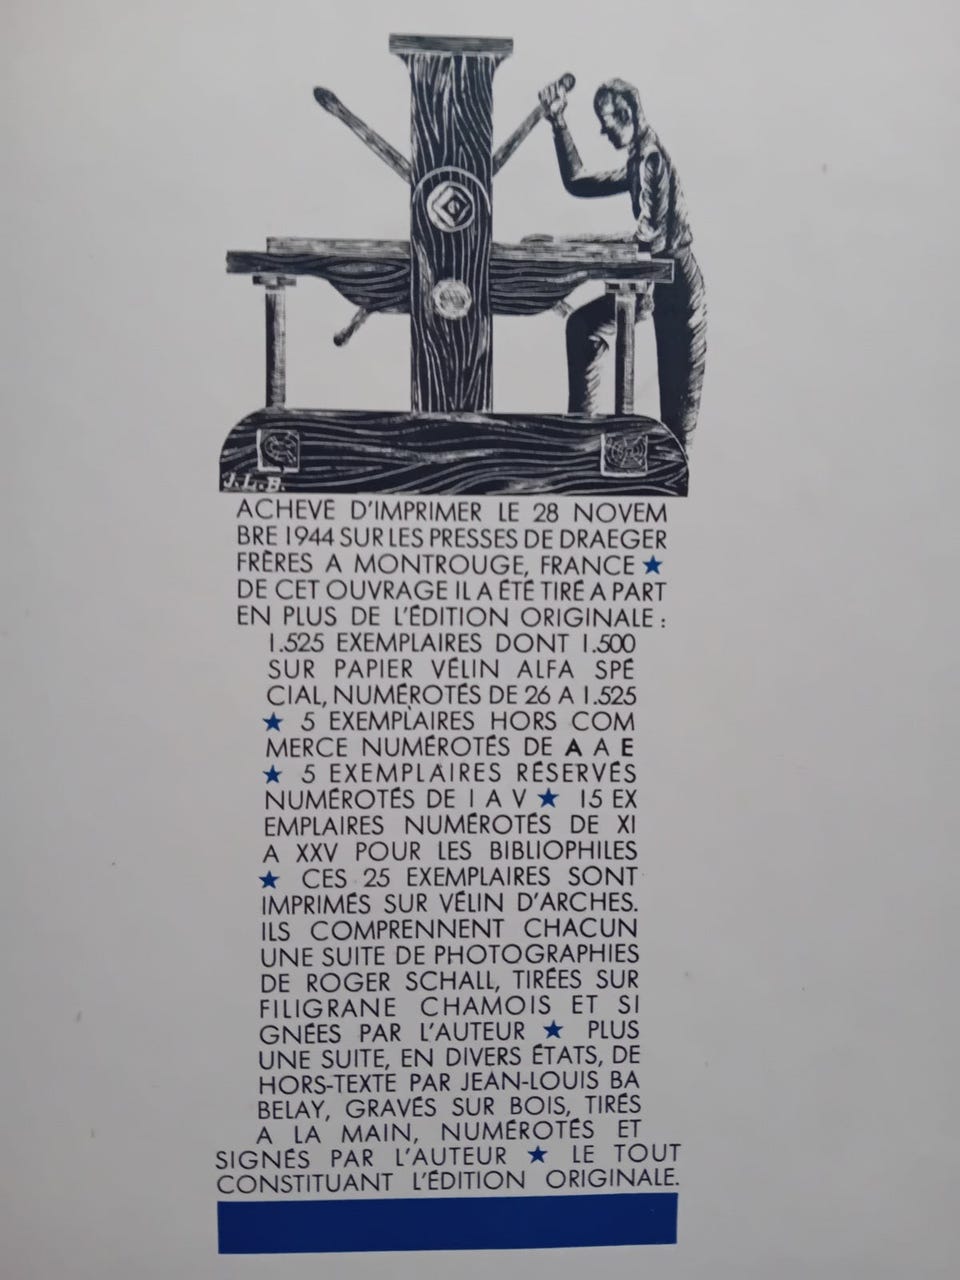 J.L.B.
ACHEVÉ D'IMPRIMER LE 28 NOVEM
BRE 1944 SUR LES PRESSES DE DRAEGER
FRÈRES A MONTROUGE, FRANCE ★
DE CET OUVRAGE IL A ÉTÉ TIRÉ A PART
EN PLUS DE L'ÉDITION ORIGINALE :
1.525 EXEMPLAIRES DONT 1.500
SUR PAPIER VÉLIN ALFA SPÉ
CIAL, NUMÉROTÉS DE 26 A 1.525
★ 5 EXEMPLAIRES HORS COM
MERCE NUMÉROTÉS DE A A E
★ 5 EXEMPLAIRES RÉSERVÉS
NUMÉROTÉS DE I A V ★ 15 EX
EMPLAIRES NUMÉROTÉS DE XI
A XXV POUR LES BIBLIOPHILES
★ CES 25 EXEMPLAIRES SONT
IMPRIMÉS SUR VÉLIN D'ARCHES.
ILS COMPRENNENT CHACUN
UNE SUITE DE PHOTOGRAPHIES
DE ROGER SCHALL, TIRÉES SUR
FILIGRANE CHAMOIS ET SI
GNÉES PAR L'AUTEUR ★ PLUS
UNE SUITE, EN DIVERS ÉTATS, DE
HORS-TEXTE PAR JEAN-LOUIS BA
BELAY, GRAVÉS SUR BOIS, TIRÉS
A LA MAIN, NUMÉROTÉS ET
SIGNÉS PAR L'AUTEUR ★ LE TOUT
CONSTITUANT L'ÉDITION ORIGINALE.